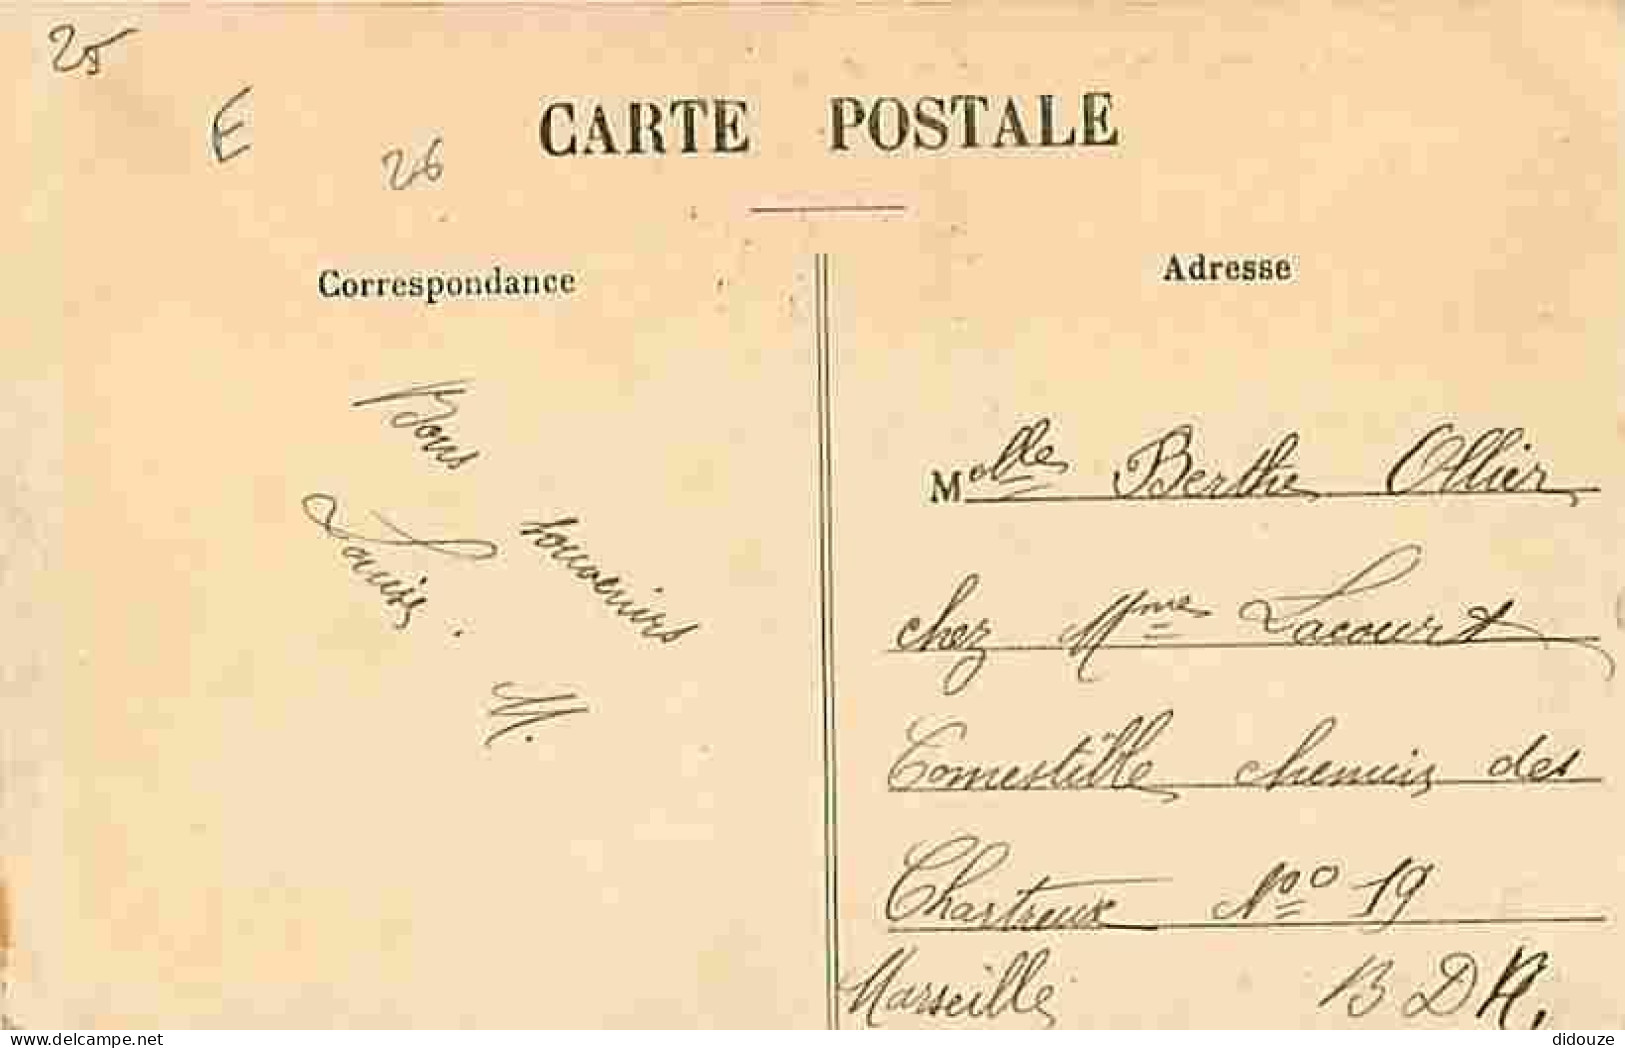 25
E
26
CARTE POSTALE
Correspondance
Bons
souvenirs
Louise.
M.
Adresse
Melles Berthe Ollier
chez Mmes Lacourt
Comestible chemin des
Chartreux Noo 19
Marseille B D R,
delcampe.net
didouze